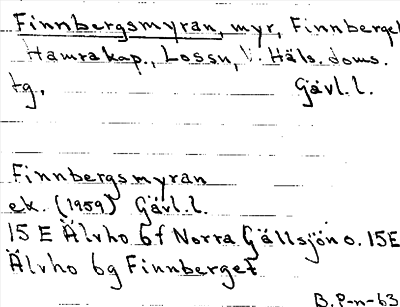 Finnbergsmyran, myr, Finnberget
Hamrakap., Lossn, V. Häls. doms.
tg. Gävl. l.
Finnbergsmyran
ek. (1959) Gävl. l.
15 E Älvho 6f Norra Gällsjön o. 15E
Älvho 6g Finnberget
B. P-n-63